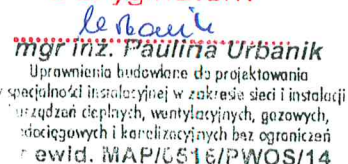 mgr inż. Paulina Urbanik
Uprawnienia budowlane do projektowania
specjalności instalacyjnej w zakresie sieci i instalacji
urządzeń cieplnych, wentylacyjnych, gazowych,
wodociągowych i kanalizacyjnych bez ograniczeń
ewid. MAP/0516/PWOS/14